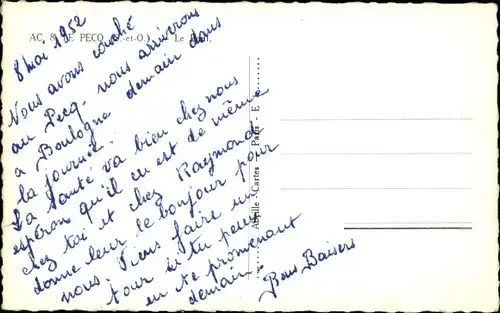 AC. 8 PECQ (S.-et-O.) Le Pont.
8 mai 1952
Nous avons couché
au Pecq. nous arriverons
a Boulogne demain dans
la journée.
La santé va bien chez nous
espéron qu'il en est de même
chez toi et chez Raymond
donne leur le bonjour pour
nous. Viens faire un
tour si tu peux
en te promenant
demain.
Bons Baisers
Abeille - Cartes - Paris - E